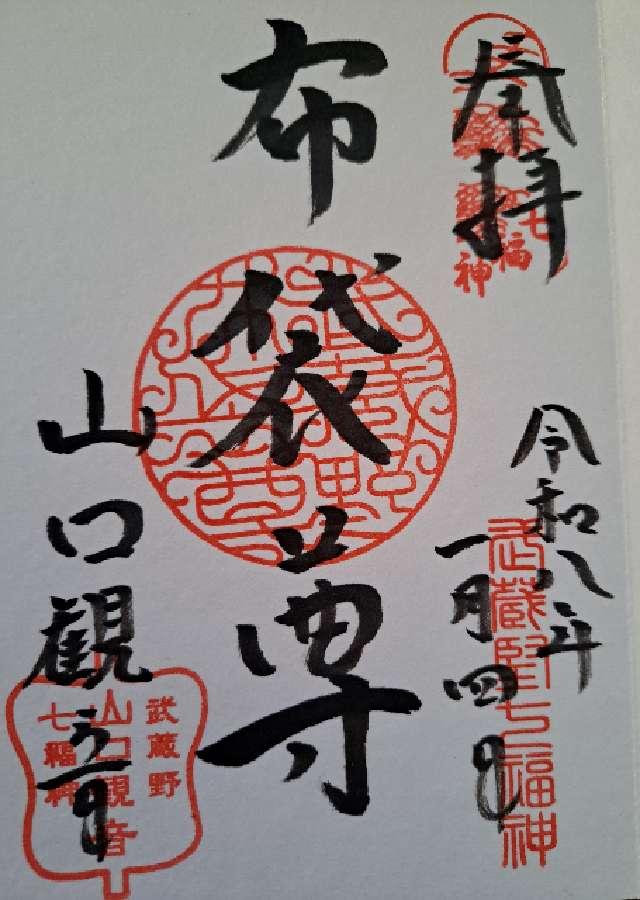 奉拝
七福神
令和八年
一月四日
武蔵野七福神
布袋尊
山口観音
武蔵野
山口観音
七福神